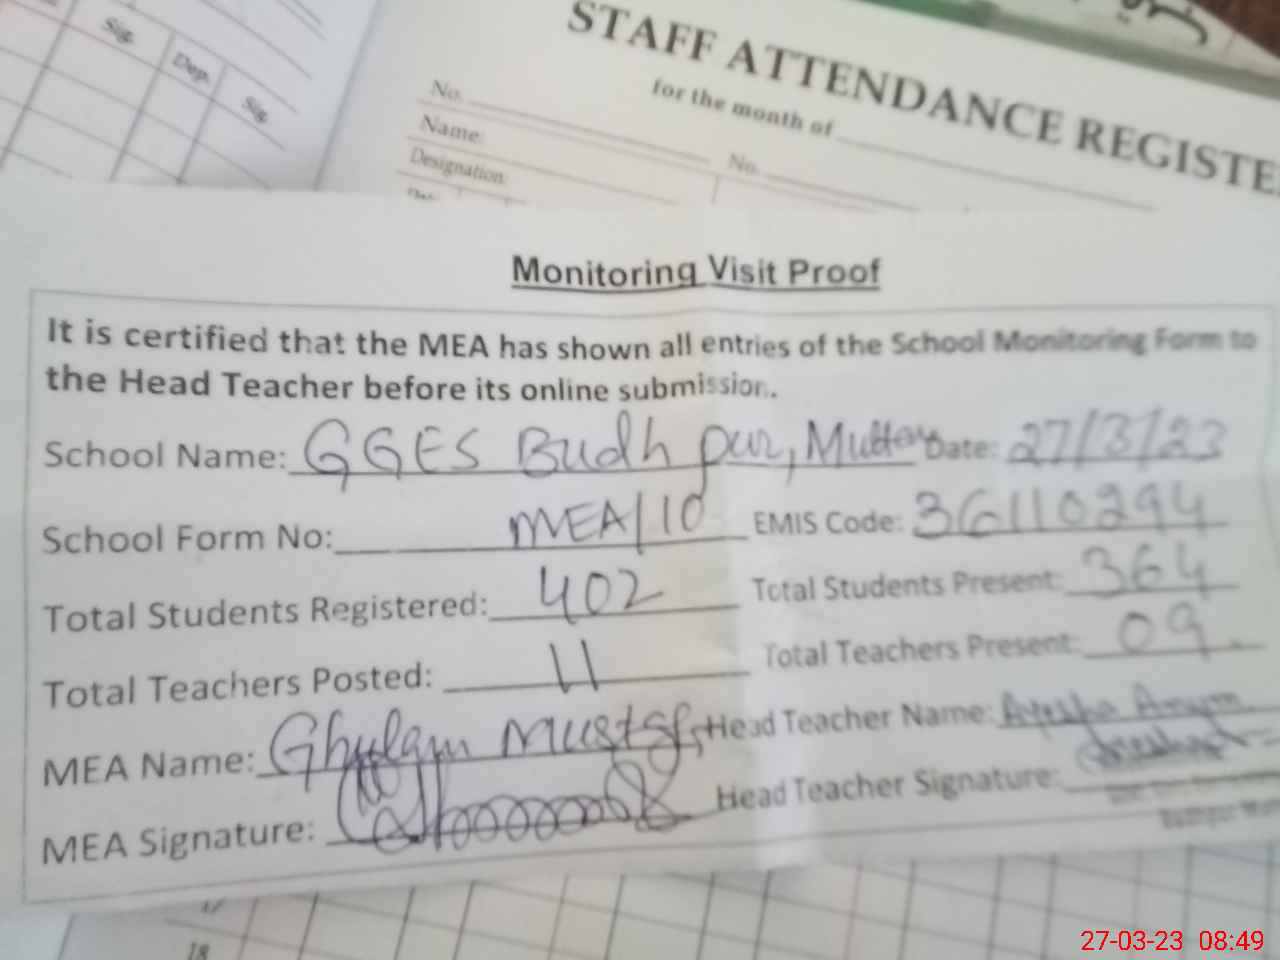 Sig.
Dep.
Sig.
STAFF ATTENDANCE REGISTE
for the month of
No.
Name:
No.
Designation:
Monitoring Visit Proof
It is certified that the MEA has shown all entries of the School Monitoring Form to
the Head Teacher before its online submission.
School Name: GGES Budh pur, Multan Date: 27/3/23
School Form No: MEA/10 EMIS Code: 36110294
Total Students Registered: 402 Total Students Present: 364
Total Teachers Posted: 11 Total Teachers Present: 09
MEA Name: Ghulam Mustafa Head Teacher Name: Ayesha Anjum
MEA Signature: Head Teacher Signature:
17
18
27-03-23 08:49